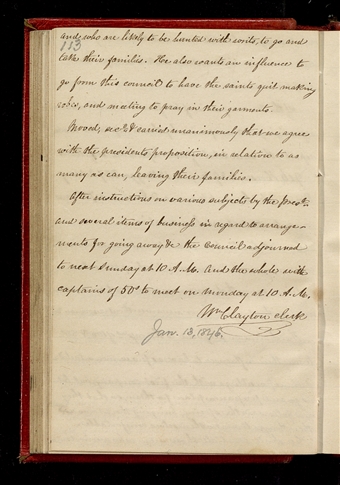 and who are likely to be hunted with writs, to go and
113
take their families. He also wants an influence to
go from this council to have the saints quit making
robes, and meeting to pray in their garments.
Moved, sec.d & carried unanimously that we agree
with the presidents proposition, in relation to as
many as can, leaving their families.
After instructions on various subjects by the Prest.
and several items of business in regard to arrange-
ments for going away &c the Council adjourned
to next Sunday at 10 A.M. and the whole with
captains of 50s to meet on Monday at 10 A.M.
Wm Clayton clerk
Jan. 13, 1846.